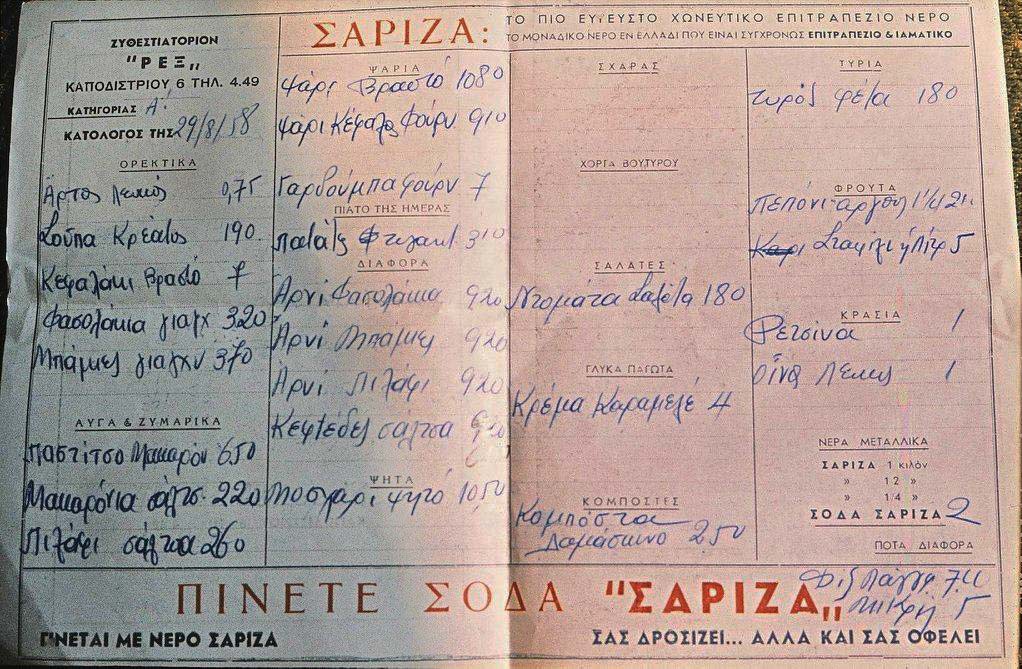 ΖΥΘΕΣΤΙΑΤΟΡΙΟΝ
"ΡΕΞ"
ΚΑΠΟΔΙΣΤΡΙΟΥ 6 ΤΗΛ. 4.49
ΚΑΤΗΓΟΡΙΑΣ Α'.
ΚΑΤΟΛΟΓΟΣ ΤΗΣ 29/8/58
ΟΡΕΚΤΙΚΑ
Άρτος λευκός 0,75
Σούπα Κρέατος 190
Κεφαλάκι Βραστό 7
Φασολάκια γιαχ 320
Μπάμιες γιαχν 370
ΑΥΓΑ & ΖΥΜΑΡΙΚΑ
Παστίτσο Μακαρόν 650
Μακαρόνια σάλτσ. 220
Πιλάφι σάλτσα 260
ΣΑΡΙΖΑ:
ΤΟ ΠΙΟ ΕΥΓΕΥΣΤΟ ΧΩΝΕΥΤΙΚΟ ΕΠΙΤΡΑΠΕΖΙΟ ΝΕΡΟ
ΤΟ ΜΟΝΑΔΙΚΟ ΝΕΡΟ ΕΝ ΕΛΛΑΔΙ ΠΟΥ ΕΙΝΑΙ ΣΥΓΧΡΟΝΩΣ ΕΠΙΤΡΑΠΕΖΙΟ & ΙΑΜΑΤΙΚΟ
ΨΑΡΙΑ
Ψάρι Βραστό 1080
Ψάρι Κέφαλος Φούρν 910
Γαρδούμπα φούρν 7
ΠΙΑΤΟ ΤΗΣ ΗΜΕΡΑΣ
Πατάτες 310
ΔΙΑΦΟΡΑ
Αρνί Φασολάκια 920
Αρνί Μπάμιες 920
Αρνί Πιλάφι 920
Κεφτέδες σάλτσα
ΨΗΤΑ
Μοσχάρι ψητό 1050
ΣΧΑΡΑΣ
ΧΟΡΤΑ ΒΟΥΤΥΡΟΥ
ΣΑΛΑΤΕΣ
Ντομάτα Σαλάτα 180
ΓΛΥΚΑ ΠΑΓΩΤΑ
Κρέμα Καραμελέ 4
ΚΟΜΠΟΣΤΕΣ
Κομπόστα
Δαμάσκηνο 250
ΤΥΡΙΑ
Τυρός φέτα 180
ΦΡΟΥΤΑ
Πεπόνι
Σταφύλι 5
ΚΡΑΣΙΑ
Ρετσίνα 1
Οίνος Λευκός 1
ΝΕΡΑ ΜΕΤΑΛΛΙΚΑ
ΣΑΡΙΖΑ 1 κιλόν
» 1 2 »
» 1/4 »
ΣΟΔΑ ΣΑΡΙΖΑ 2
ΠΟΤΑ ΔΙΑΦΟΡΑ
Φιξ 740
μικρή 5
ΠΙΝΕΤΕ ΣΟΔΑ "ΣΑΡΙΖΑ"
ΓΙΝΕΤΑΙ ΜΕ ΝΕΡΟ ΣΑΡΙΖΑ
ΣΑΣ ΔΡΟΣΙΖΕΙ... ΑΛΛΑ ΚΑΙ ΣΑΣ ΟΦΕΛΕΙ